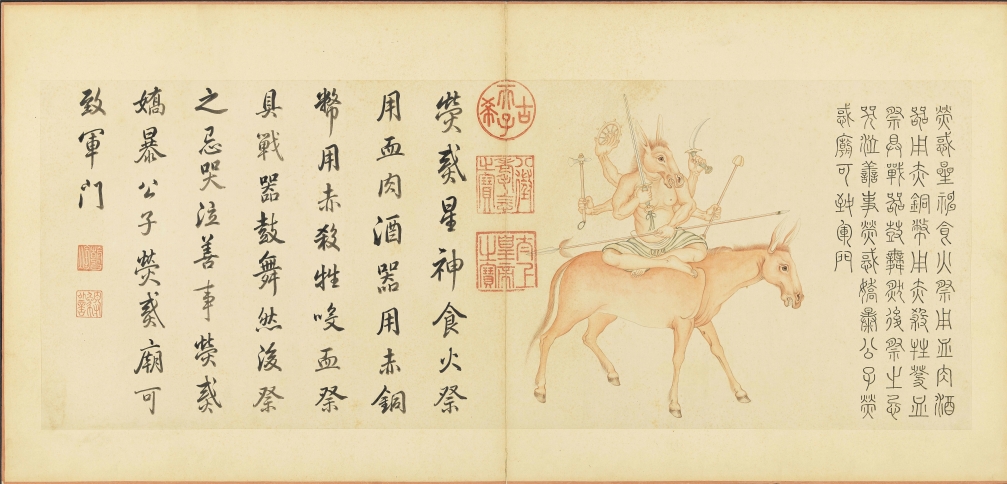 熒惑星神食火祭用血肉酒
器用赤銅幣用赤殺牲血
祭具戰器鼓舞然後祭之忌
哭泣善事熒惑嬌暴公子熒
惑廟可致軍門
古希天子
八徵耄念之寶
太上皇帝之寶
熒惑星神食火祭
用血肉酒器用赤銅
幣用赤殺牲血祭
具戰器鼓舞然後祭
之忌哭泣善事熒惑
嬌暴公子熒惑廟可
致軍門